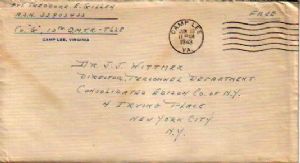 PVT. THEODORE E. GILLEN
A.S.N. 32803433
Co. "G", 10TH Q.M.T.R. - T558
CAMP LEE, VIRGINIA
FREE
CAMP LEE
JUN
1943
VA.
DR. J. J. WITTMER
DIRECTOR, PERSONNEL DEPARTMENT
CONSOLIDATED EDISON CO. OF N.Y.
4 IRVING PLACE
NEW YORK CITY
N.Y.